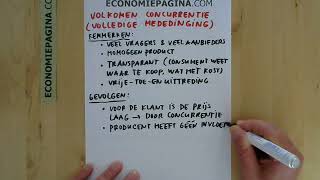 ECONOMIEPAGINA.COM
ECONOMIEPAGINA.COM
VOLKOMEN CONCURRENTIE
(VOLLEDIGE MEDEDINGING)
KENMERKEN:
• VEEL VRAGERS & VEEL AANBIEDERS
• HOMOGEEN PRODUCT
• TRANSPARANT (CONSUMENT WEET
WAAR TE KOOP, WAT HET KOST)
• VRIJE TOE- EN UITTREDING
GEVOLGEN:
• VOOR DE KLANT IS DE PRIJS
LAAG → DOOR CONCURRENTIE
• PRODUCENT HEEFT GÉÉN INVLOED